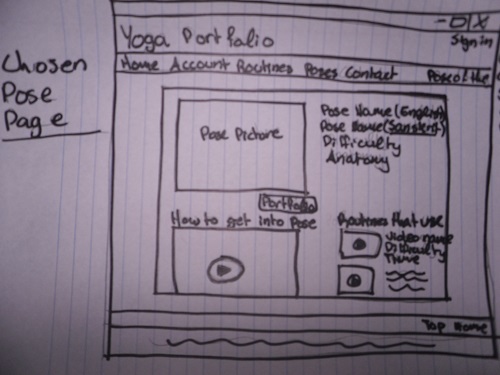 Chosen
Pose
Page
- O X
Sign in
Yoga Portfolio
Home Account Routines Poses Contact Pose of the
Pose Picture
Pose Name (English)
Pose Name (Sanskrit)
Difficulty
Anatomy
Portfolio
How to get into Pose
Routines that use
Video name
Difficulty
Time
Top Home